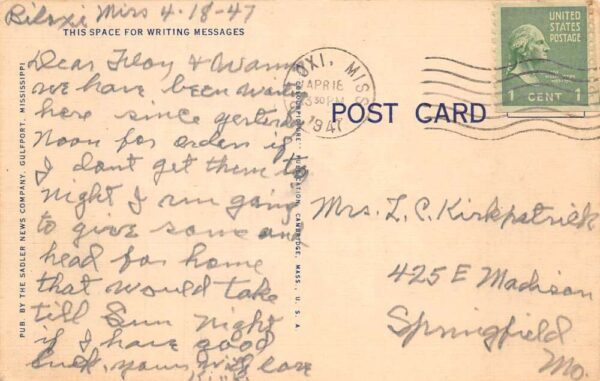 Biloxi Miss 4-18-47
THIS SPACE FOR WRITING MESSAGES
Dear Floy &
we have been
here since yesterday
Noon for orders if
I dont get them to
night I um going
to give some and
head for home
that would take
till Sun Night
if I have good
luck, yours with love
PUB. BY THE SADLER NEWS COMPANY, GULFPORT, MISSISSIPPI
PUBLICATION, CAMBRIDGE, MASS., U. S. A.
OXI, MISS
APR 18
330 PM
1947
POST CARD
UNITED
STATES
POSTAGE
1 CENT 1
Mrs. L. C. Kirkpatrick
425 E Madison
Springfield
Mo.